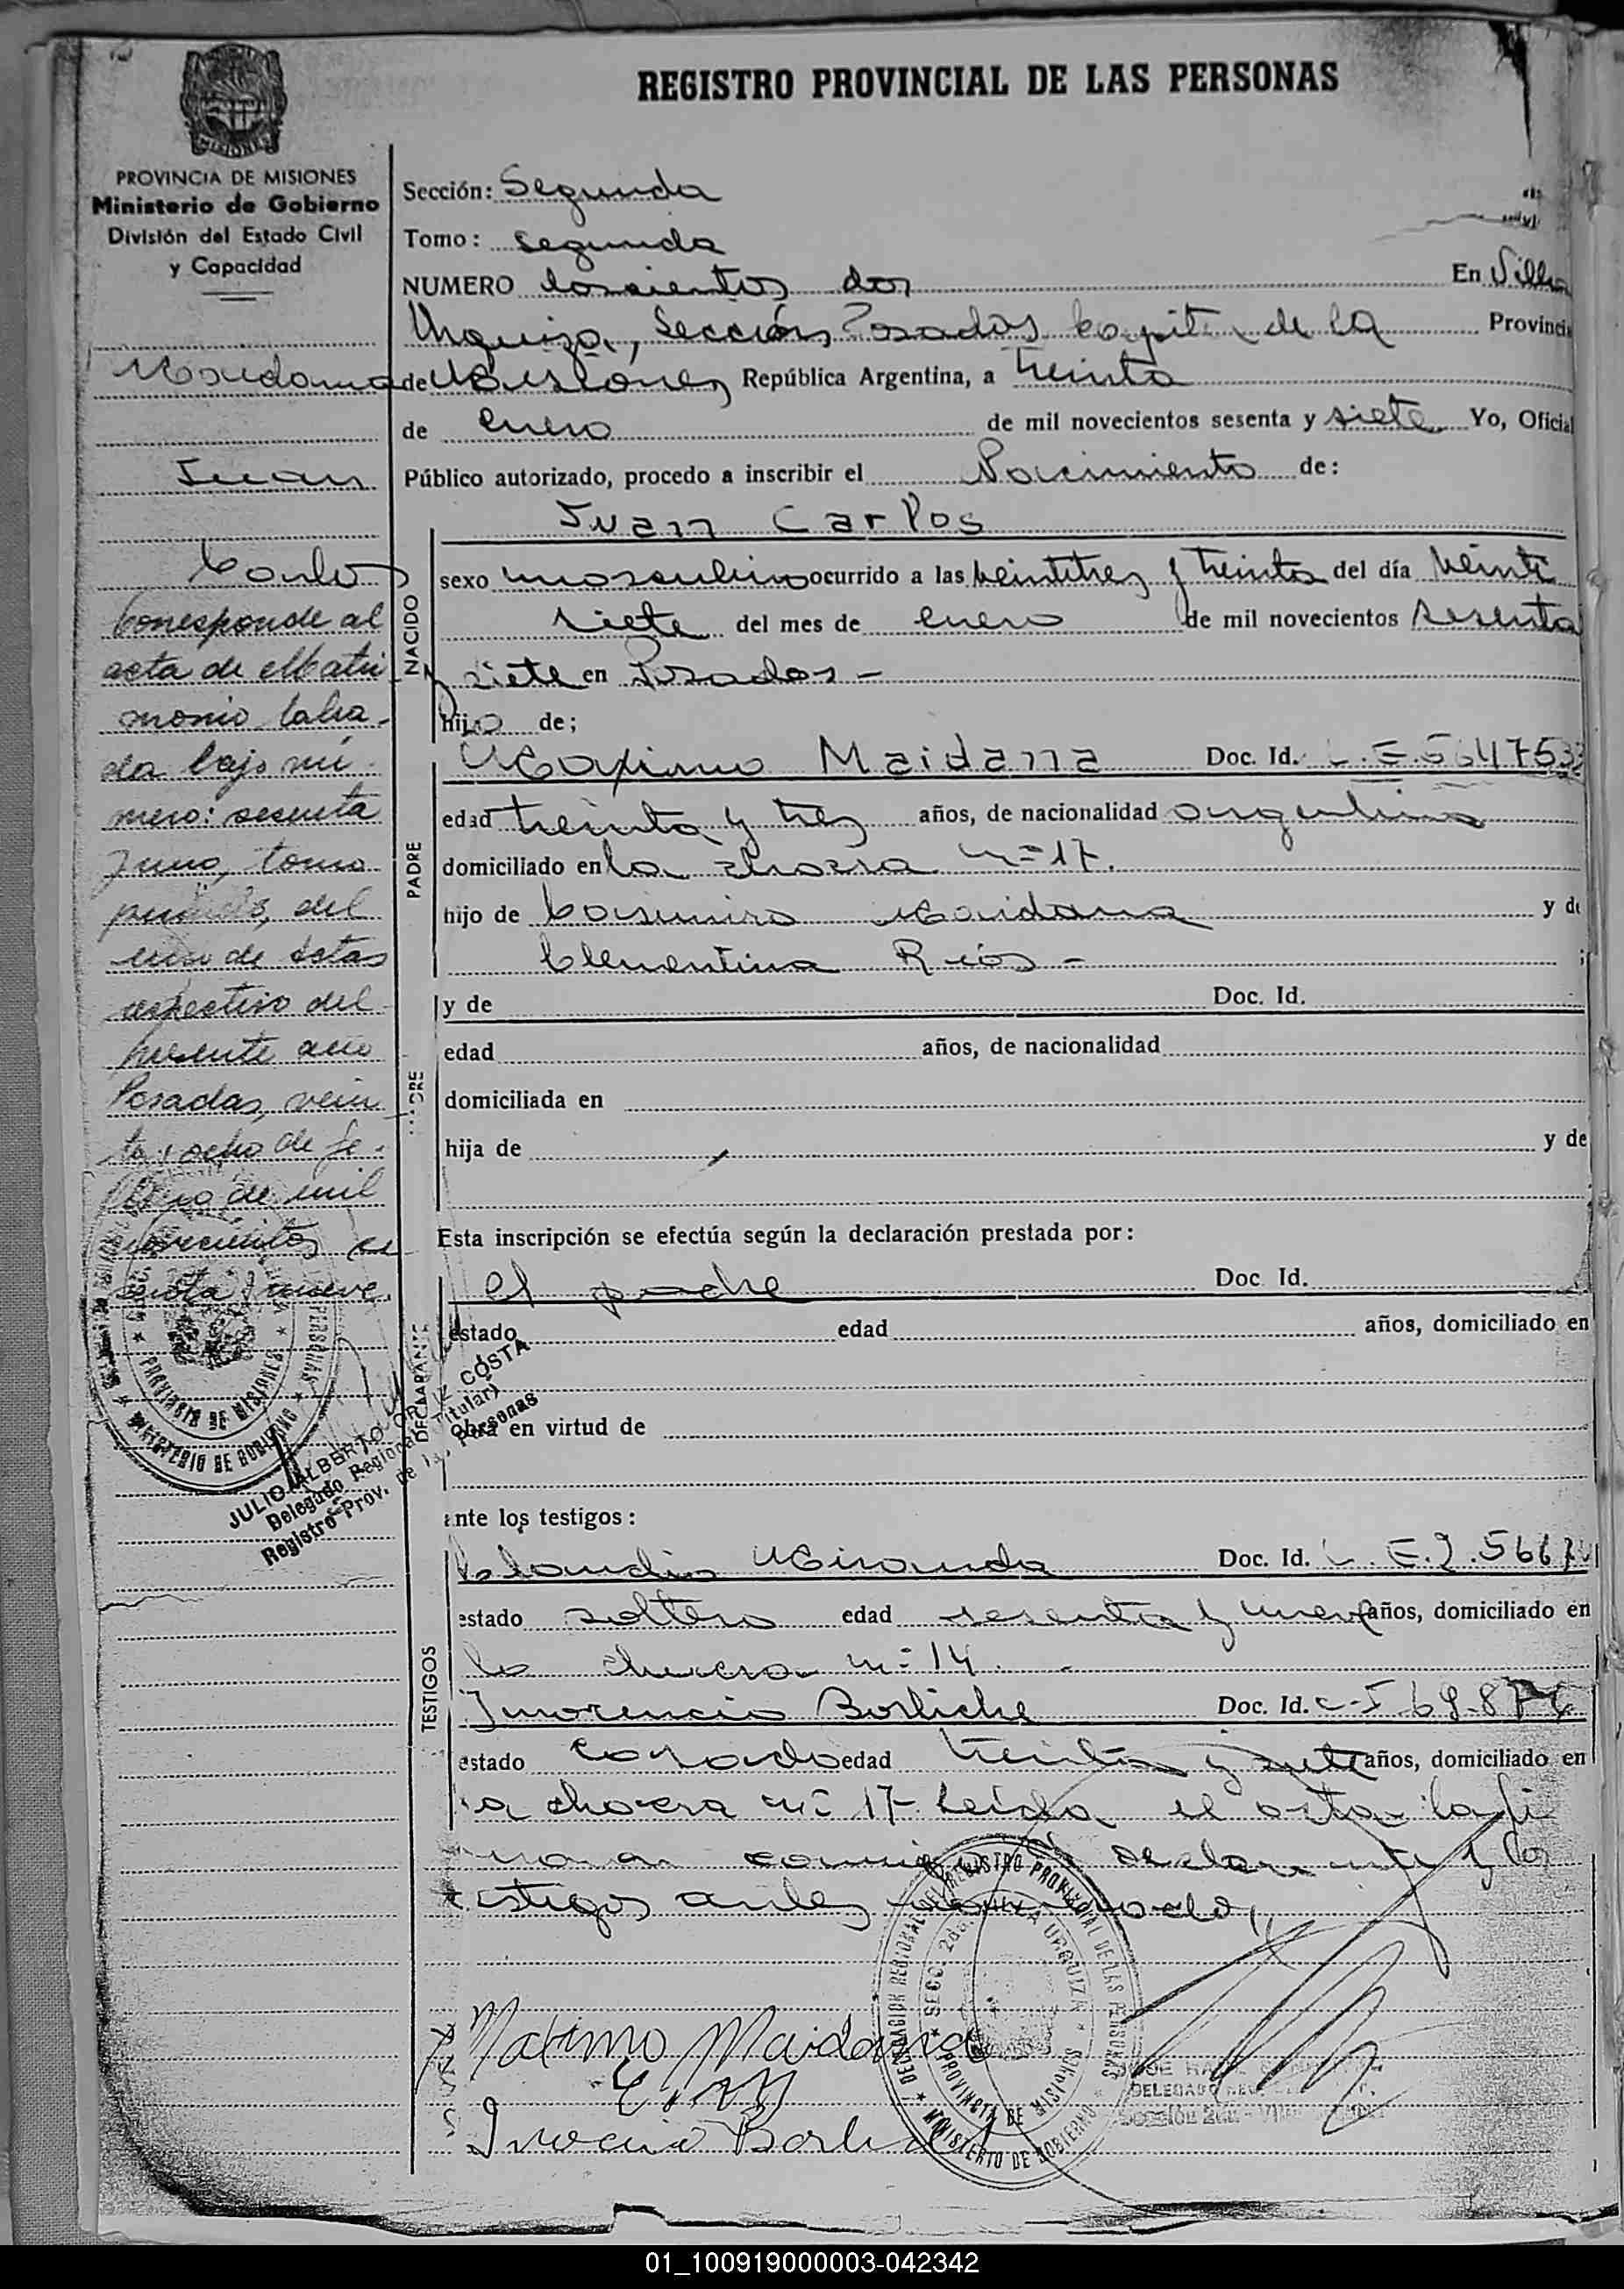 REGISTRO PROVINCIAL DE LAS PERSONAS
MISIONES
PROVINCIA DE MISIONES
Ministerio de Gobierno
División del Estado Civil
y Capacidad
Sección: Segunda
Tomo: segunda
NUMERO doscientos dos En Villa
Urquiza, Sección Posadas Capital de la Provincia
de Misiones República Argentina, a treinta
de enero de mil novecientos sesenta y siete Yo, Oficial
Público autorizado, procedo a inscribir el Nacimiento de:
Maidana
Juan
Carlos
Corresponde al
acta de Matri
monio labra-
da bajo nú-
mero: sesenta
y uno, tomo
primero, del
libro de actas
respectivo del
presente año
Posadas, vein
tiocho de fe-
brero de mil
novecientos se
senta y nueve.
NACIDO
Juan Carlos
sexo masculino ocurrido a las veintitres y treinta del día veinti
siete del mes de enero de mil novecientos sesenta
y siete en Posadas -
hijo de;
PADRE
Maximo Maidana Doc. Id. L.E. 5647533
edad treinta y tres años, de nacionalidad argentina
domiciliado en la chacra nº 17.
hijo de Casimiro Maidana y de
Clementina Rios - ;
MADRE
y de Doc. Id.
edad años, de nacionalidad
domiciliada en
hija de y de
Esta inscripción se efectúa según la declaración prestada por:
DECLARANTE
el padre Doc. Id.
estado edad años, domiciliado en
obra en virtud de
JULIO ALBERTO COSTA
Delegado Regional (Titular)
Registro Prov. de las Personas
MINISTERIO DE GOBIERNO
PROVINCIA DE MISIONES
ante los testigos:
TESTIGOS
Claudio Miranda Doc. Id. L.E. 2.566
estado soltero edad sesenta y nueve años, domiciliado en
la chacra nº 14. -
Inocencio Borliche Doc. Id. C-I 69.874
estado casado edad treinta y siete años, domiciliado en
la chacra nº 17- Leída el acta la fir
maron conmigo el declarante y los
testigos antes nombrado,
DELEGACION REGIONAL DEL REGISTRO PROVINCIAL DE LAS PERSONAS
SECC. 2da. VILLA URQUIZA
PROVINCIA DE MISIONES
MINISTERIO DE GOBIERNO
Maximo Maidana
Inocencio Borliche
DELEGADO
Sección 2da.
01_100919000003-042342